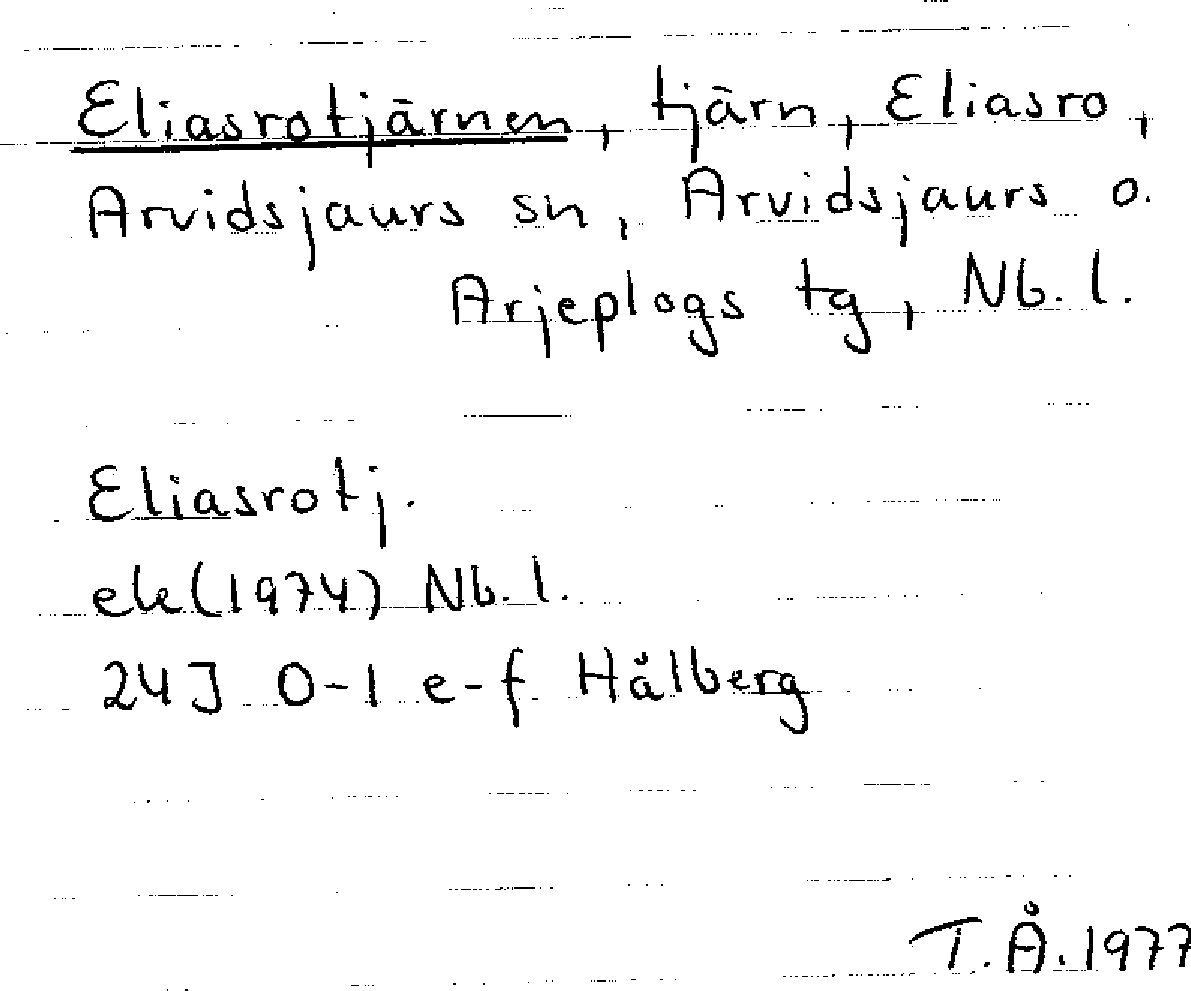 Eliasrotjärnen, tjärn, Eliasro,
Arvidsjaurs sn, Arvidsjaurs o.
Arjeplogs tg, Nb. l.
Eliasrotj.
ek (1974) Nb. l.
24J 0-1 e-f Hålberg
T.Å. 1977